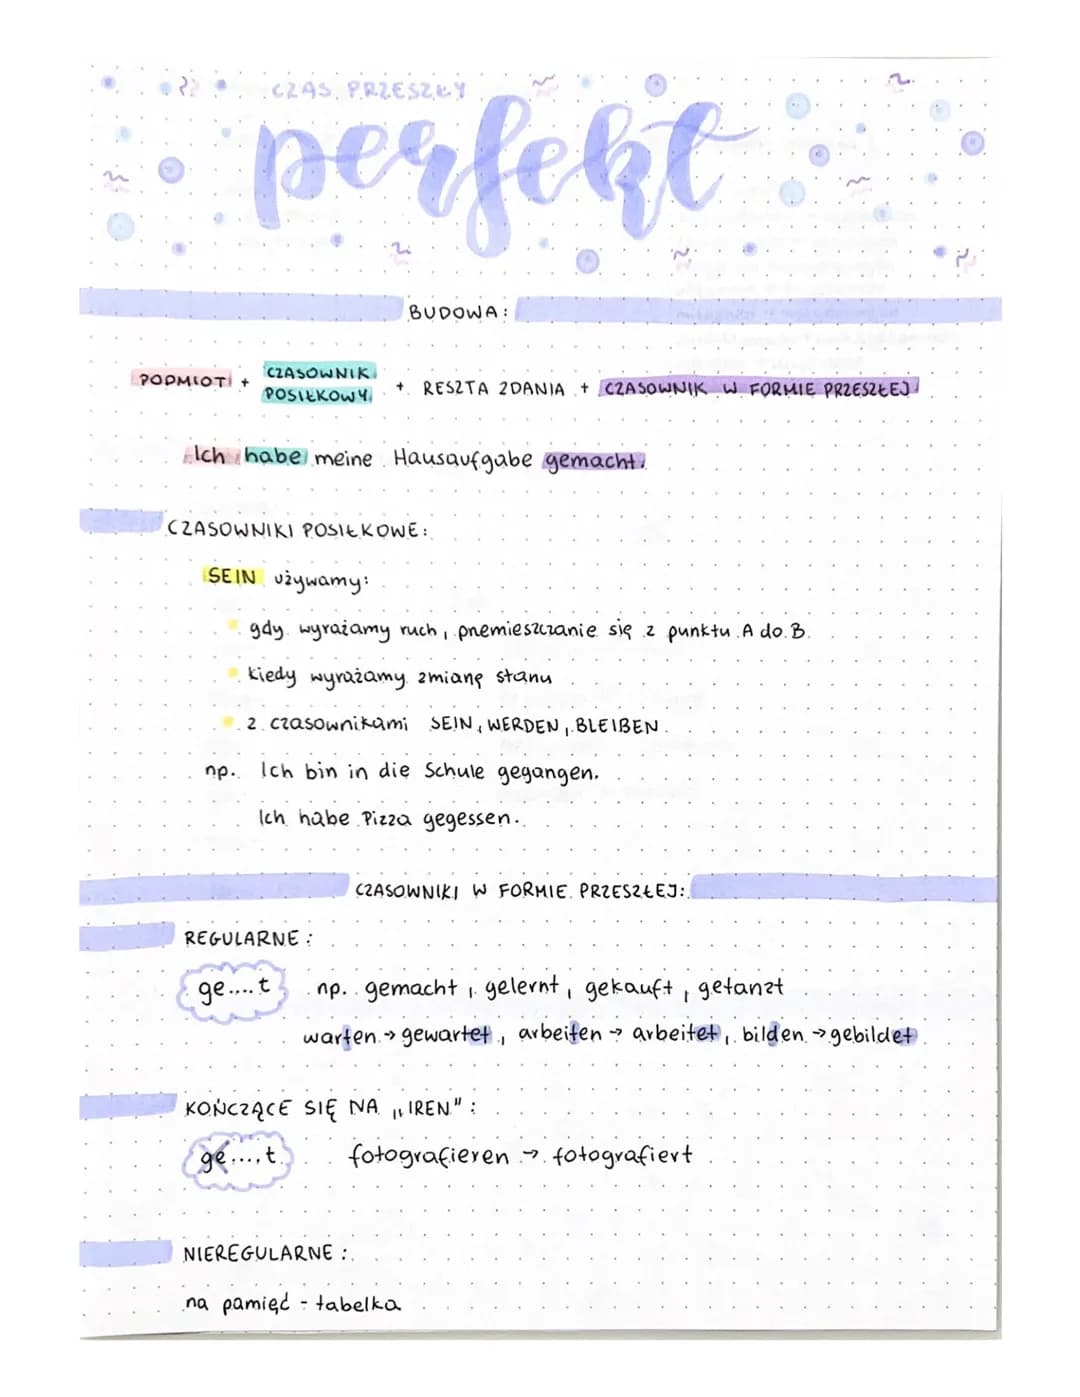 CZAS PRZESZŁY
perfekt
BUDOWA:
PODMIOT + CZASOWNIK POSIŁKOWY + RESZTA ZDANIA + CZASOWNIK W FORMIE PRZESZŁEJ
Ich habe meine Hausaufgabe gemacht.
CZASOWNIKI POSIŁKOWE:
SEIN używamy:
gdy wyrażamy ruch, pnemieszczanie się z punktu A do B.
kiedy wyrażamy zmianę stanu
z czasownikami SEIN, WERDEN, BLEIBEN
np. Ich bin in die Schule gegangen.
Ich habe Pizza gegessen.
CZASOWNIKI W FORMIE PRZESZŁEJ:
REGULARNE:
ge....t np. gemacht, gelernt, gekauft, getanzt
warten → gewartet, arbeiten → arbeitet, bilden → gebildet
KOŃCZĄCE SIĘ NA „IREN":
ge....t fotografieren → fotografiert
NIEREGULARNE:
na pamięć - tabelka